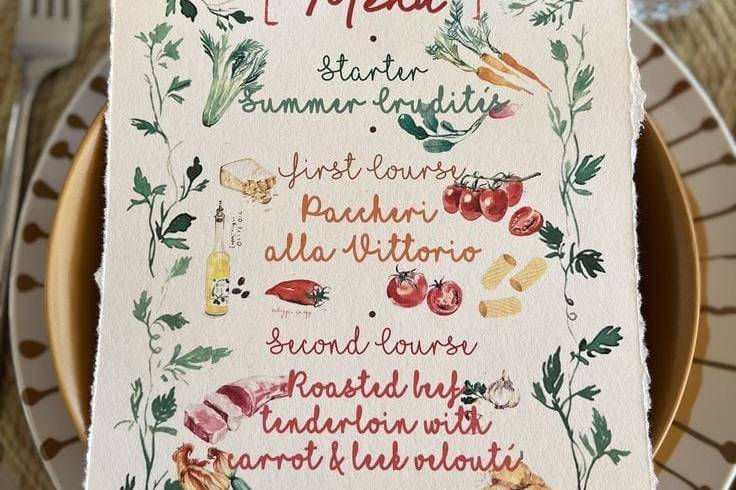 [ Menu ]
Starter
Summer Crudités
First Course
Paccheri
alla Vittorio
Second Course
Roasted beef
tenderloin with
carrot & leek velouté